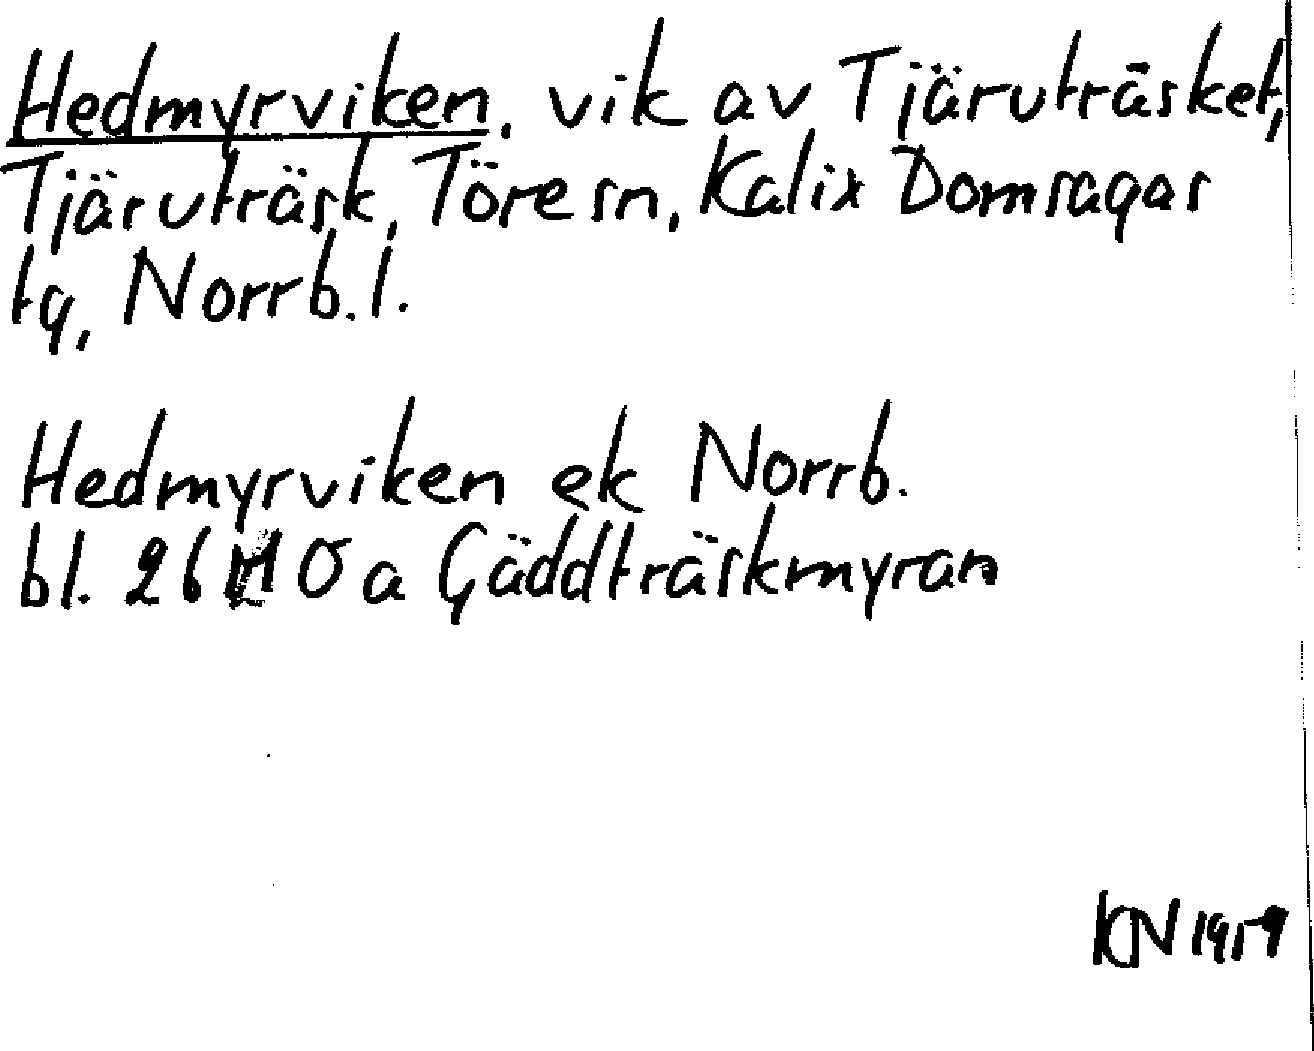 Hedmyrviken, vik av Tjäruträsket,
Tjäruträsk, Töre sn, Kalix Domsagas
tg, Norrb. l.
Hedmyrviken ek Norrb.
bl. 26 M 0 a Gäddträskmyran
KN 1959